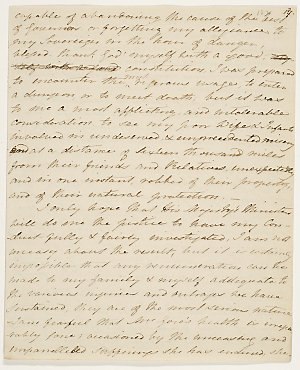 capable of abandoning the cause of the best
of Governors or forgetting my allegiance to
my Sovereign in the hour of danger,
blessed thank God my self with a good
resolution. I was prepared
to encounter the most grievous usage to enter
a dungeon or to meet death, but it was
to me a most appalling, and intolerable
consideration to see my poor Wife & Infants
involved in undeserved & unprecedented misery
and at a distance of sixteen thousand miles
from their friends and Relatives, unexpectedly
and in one instant robbed of their property,
and of their natural protection. —
I only hope that His Majesty's Ministers
will do me the justice to have my con-
duct fully & fairly investigated, I am not
uneasy about the result, but it is utterly
impossible that any remuneration can be
made to my family & myself addequate to
the various injuries and outrages we have
sustained they are of the most serious nature
I am fearful that Mrs Gore's health is irrepa-
rably gone; occasioned by the unceasing and
unparalleled sufferings she has endured she